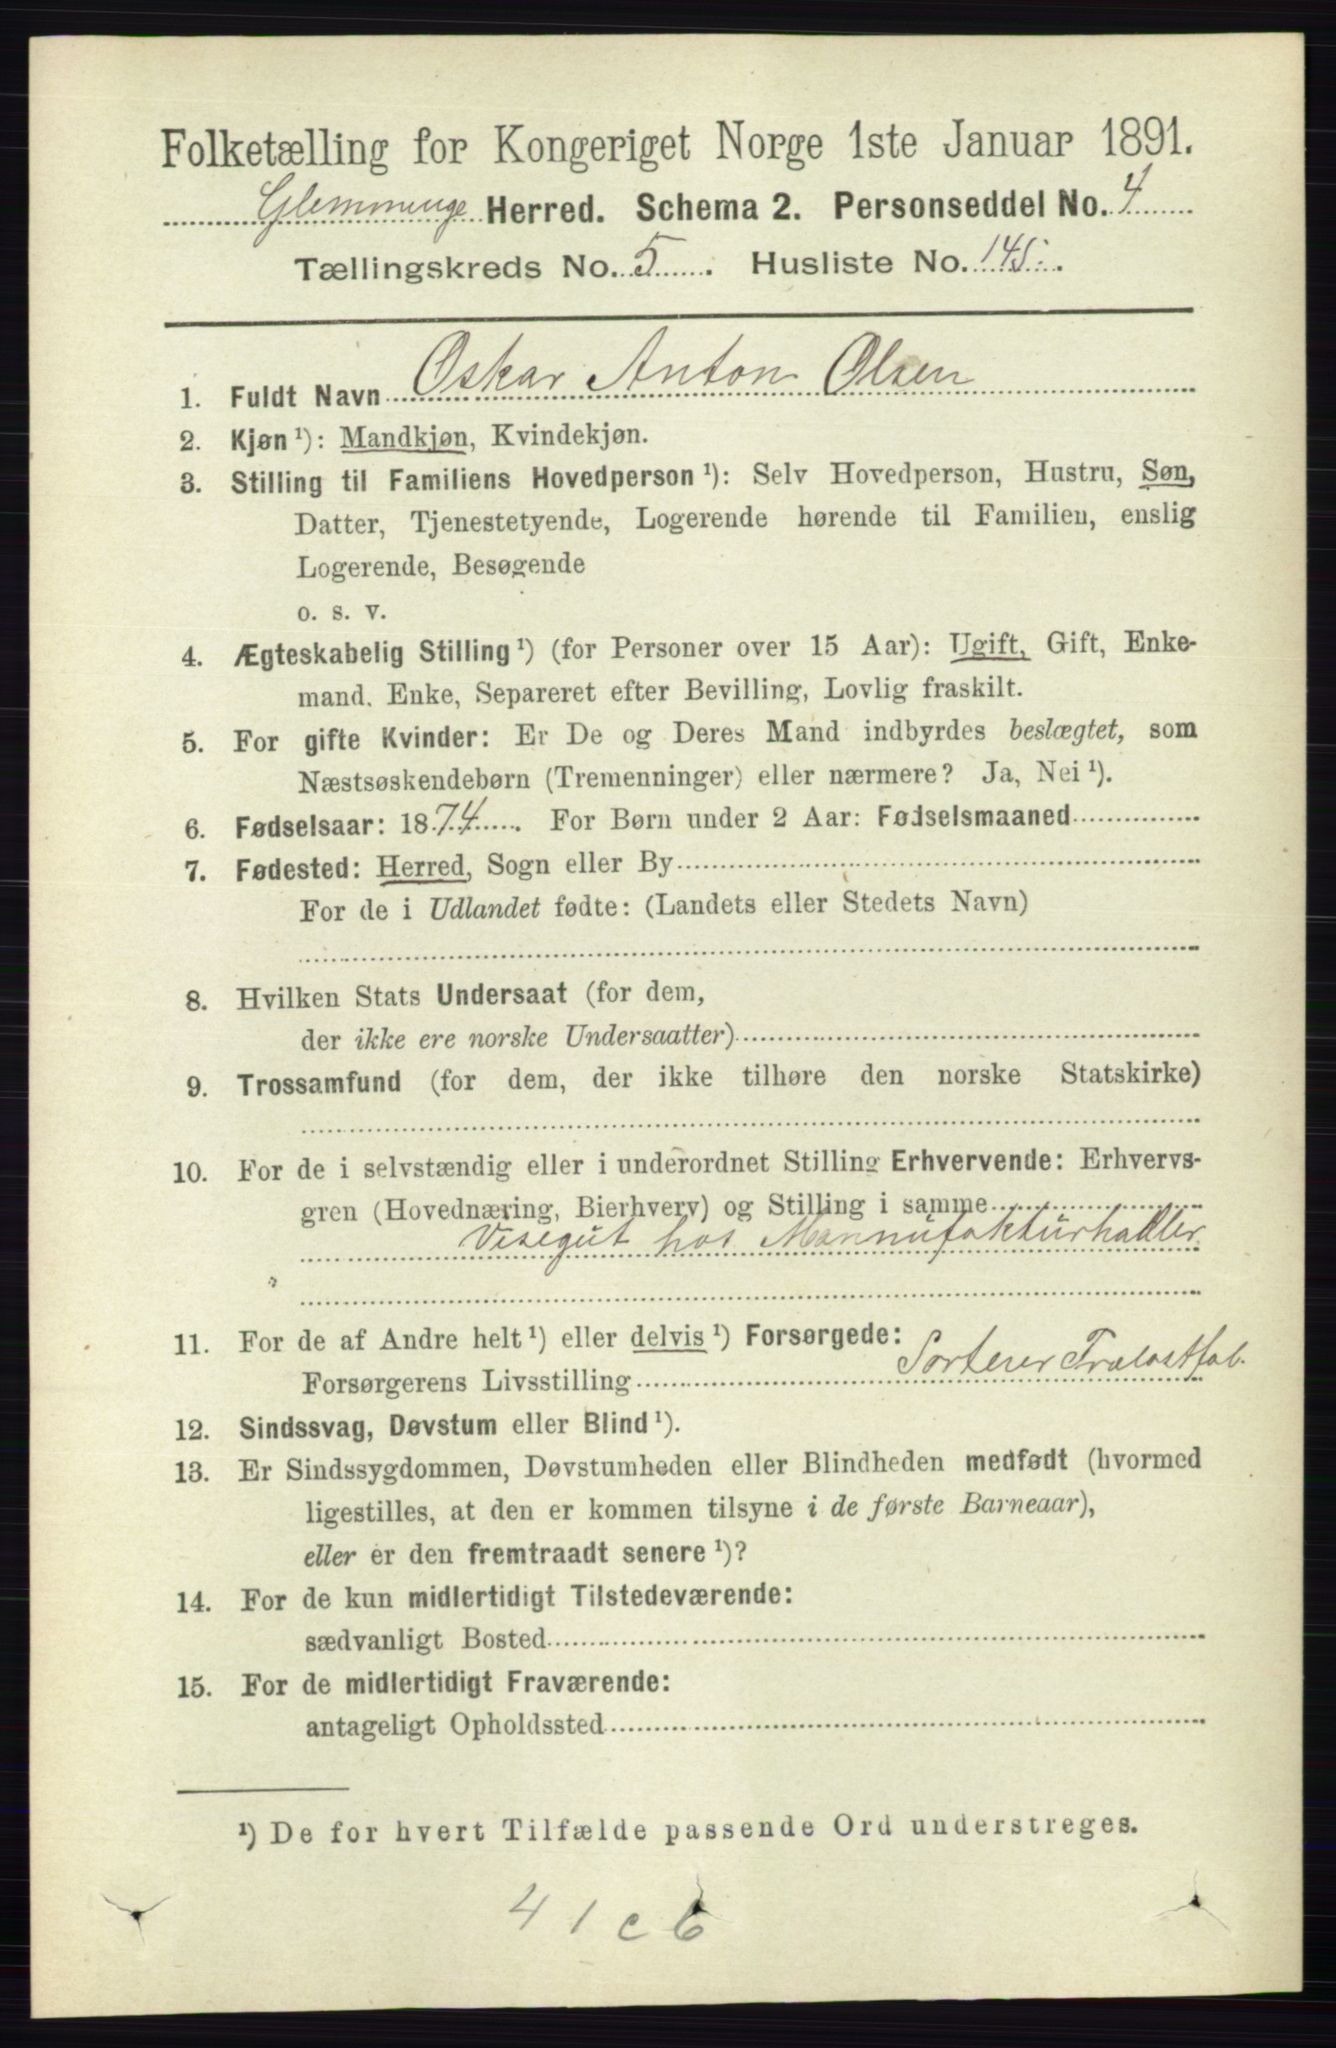 Folketælling for Kongeriget Norge 1ste Januar 1891.
Glemminge Herred. Schema 2. Personseddel No. 4
Tællingskreds No. 5. Husliste No. 145.
1. Fuldt Navn Oskar Anton Olsen
2. Kjøn¹): Mandkjøn, Kvindekjøn.
3. Stilling til Familiens Hovedperson¹): Selv Hovedperson, Hustru, Søn,
Datter, Tjenestetyende, Logerende hørende til Familien, enslig
Logerende, Besøgende
o. s. v.
4. Ægteskabelig Stilling¹) (for Personer over 15 Aar): Ugift, Gift, Enke-
mand, Enke, Separeret efter Bevilling, Lovlig fraskilt.
5. For gifte Kvinder: Er De og Deres Mand indbyrdes beslægtet, som
Næstsøskendebørn (Tremenninger) eller nærmere? Ja, Nei¹).
6. Fødselsaar: 1874. For Børn under 2 Aar: Fødselsmaaned
7. Fødested: Herred, Sogn eller By
For de i Udlandet fødte: (Landets eller Stedets Navn)
8. Hvilken Stats Undersaat (for dem,
der ikke ere norske Undersaatter)
9. Trossamfund (for dem, der ikke tilhøre den norske Statskirke)
10. For de i selvstændig eller i underordnet Stilling Erhvervende: Erhvervs-
gren (Hovednæring, Bierhverv) og Stilling i samme
Visegut hos Mannufakturhadler
11. For de af Andre helt¹) eller delvis¹) Forsørgede:
Forsørgerens Livsstilling Sorterer Trælastfab.
12. Sindssvag, Døvstum eller Blind¹).
13. Er Sindssygdommen, Døvstumheden eller Blindheden medfødt (hvormed
ligestilles, at den er kommen tilsyne i de første Barneaar),
eller er den fremtraadt senere¹)?
14. For de kun midlertidigt Tilstedeværende:
sædvanligt Bosted
15. For de midlertidigt Fraværende:
antageligt Opholdssted
¹) De for hvert Tilfælde passende Ord understreges.
41c6